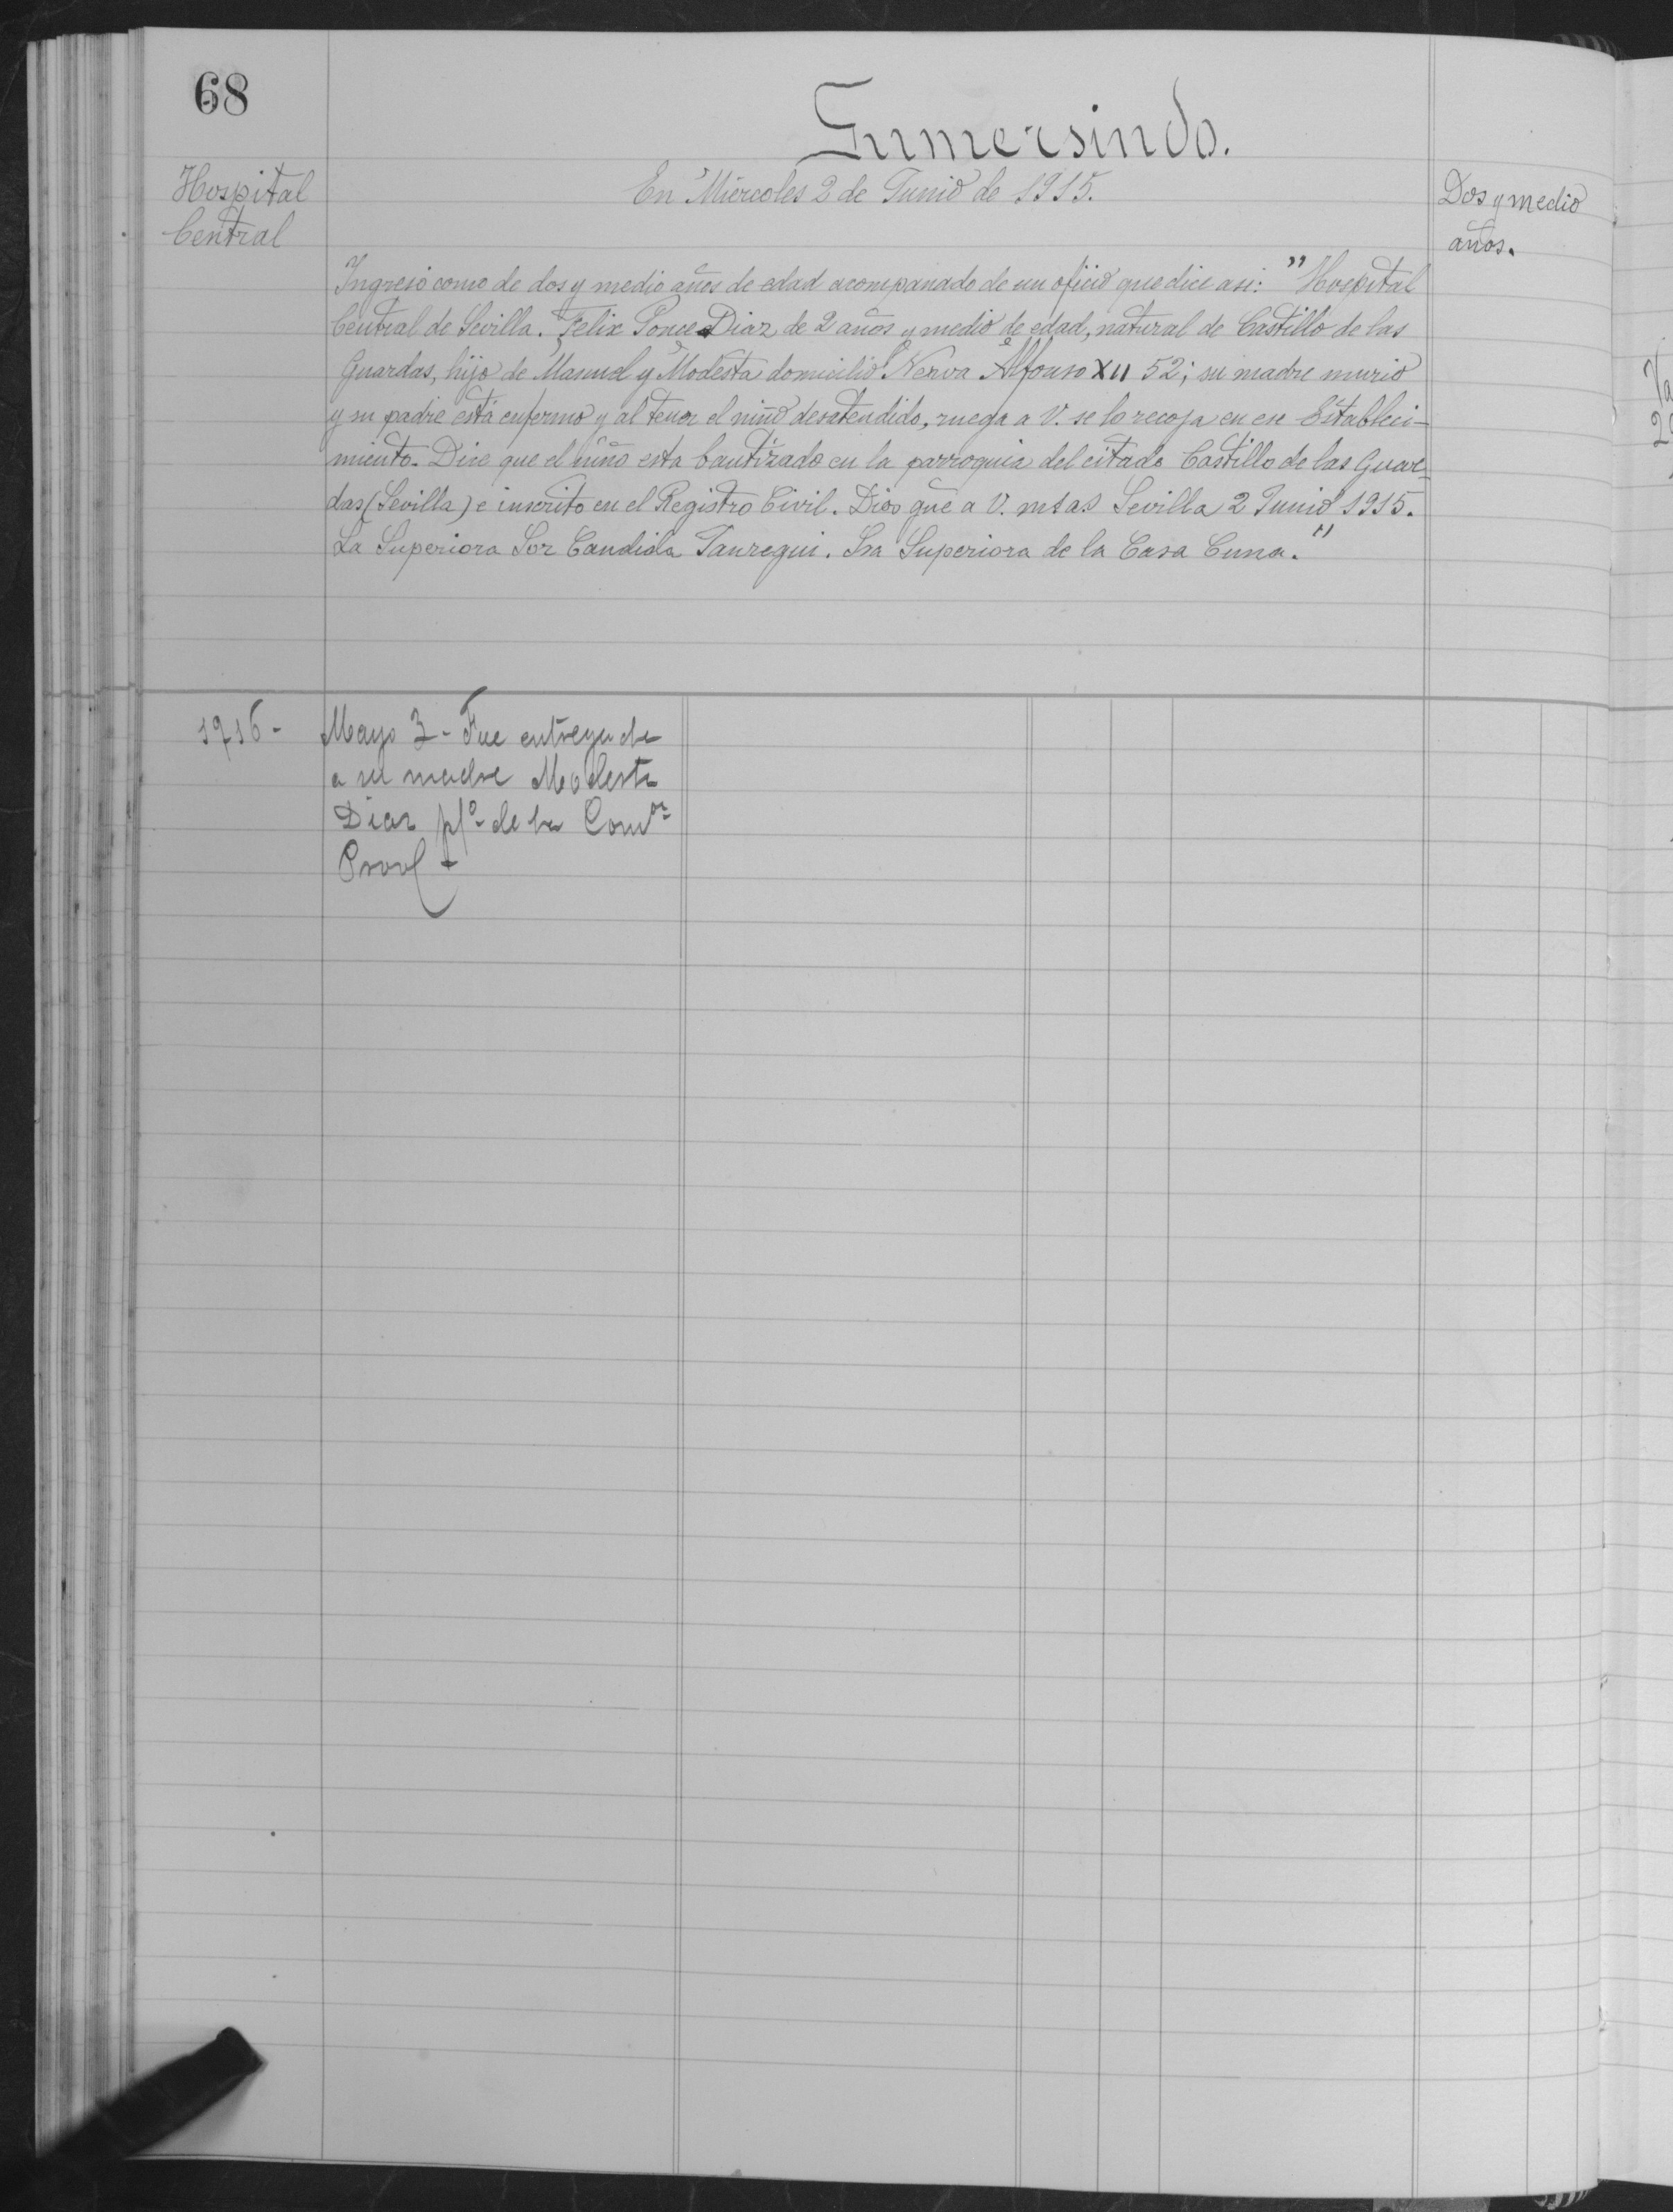 68
Gumersindo.
Hospital
Central
En Miercoles 2 de Junio de 1915.
Dos y medio
años.
Ingresó como de dos y medio años de edad acompañado de un oficio que dice asi: "Hospital
Central de Sevilla. Felix Ponce Diaz de 2 años y medio de edad, natural de Castillo de las
Guardas, hijo de Manuel y Modesta domicilio Nerva Alfonso XII 52; su madre murió
y su padre está enfermo y al tener el niño desatendido, ruega a V. se lo recoja en ese Estableci-
miento. Dice que el niño esta bautizado en la parroquia del citado Castillo de las Guar-
das (Sevilla) e inscrito en el Registro Civil. Dios gue a V. ms as Sevilla 2 Junio 1915.
La Superiora Sor Candida Jauregui. Sra Superiora de la Casa Cuna."
1916-
Mayo 3 - Fue entregado
a su madre Modesta
Diaz p/o de la Comon
Provl